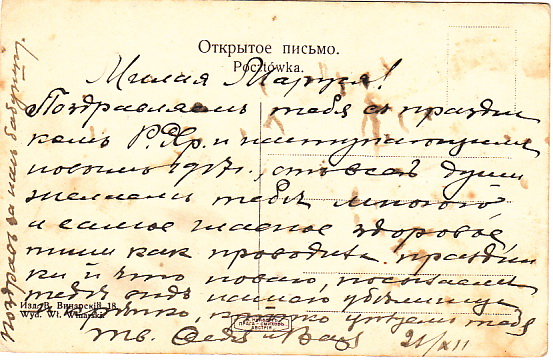 Открытое письмо.
Pocztówka.
Милая Маруся!
Поздравляемъ тебя съ праздни
комъ Р. Хр. и наступающимъ
новымъ 1917 г., отъ всей души
желаемъ тебѣ многого
и самое главное здоровья
пиши какъ проводишь праздни
ки и что новаго, посылаемъ
тебѣ видъ нашего
крѣпко, крѣпко цѣлуемъ тебя
тв. и Вася 21/XII
Изд. В. Винарскій, 18.
Wyd. Wł. Winarski.
поздравь за насъ бабушку.